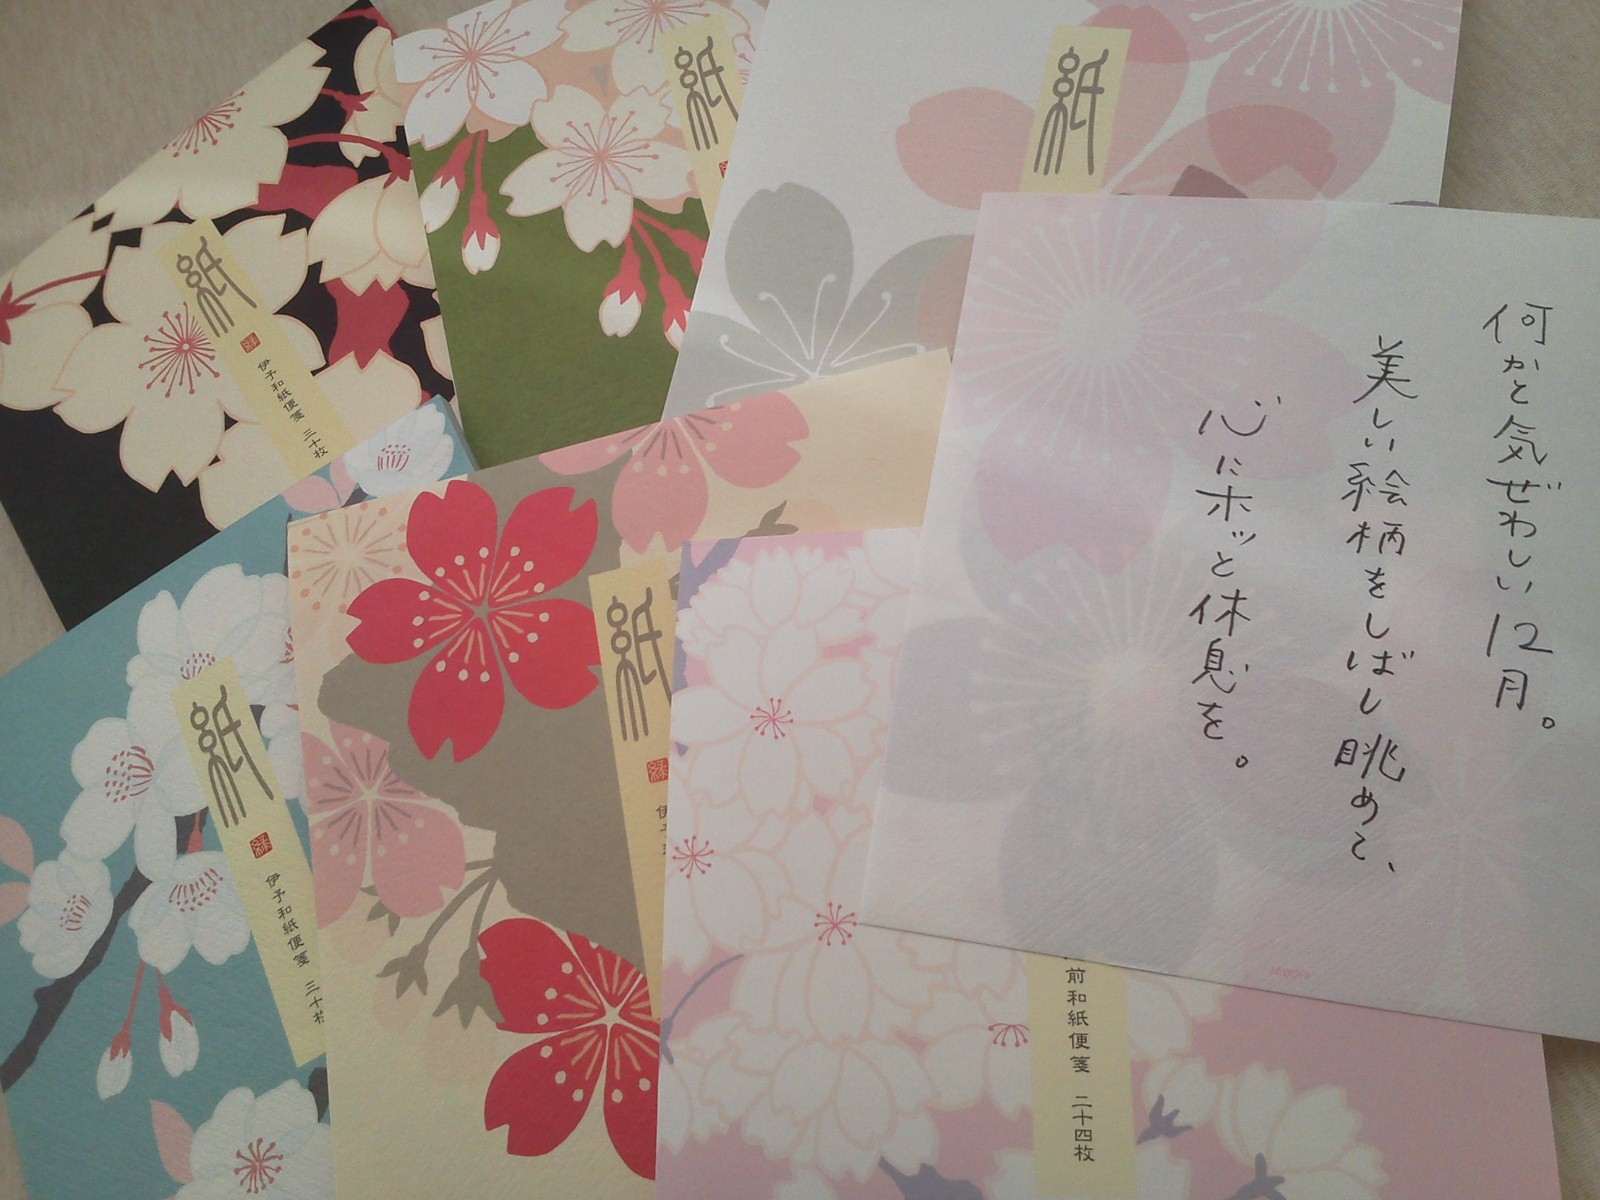 何かと気ぜわしい12月。
美しい絵柄をしばし眺めて、
心にホッと休息を。
紙
紙
紙
伊予和紙便箋 三十枚
紙
紙
伊予和紙便箋 三十枚
前和紙便箋 二十四枚